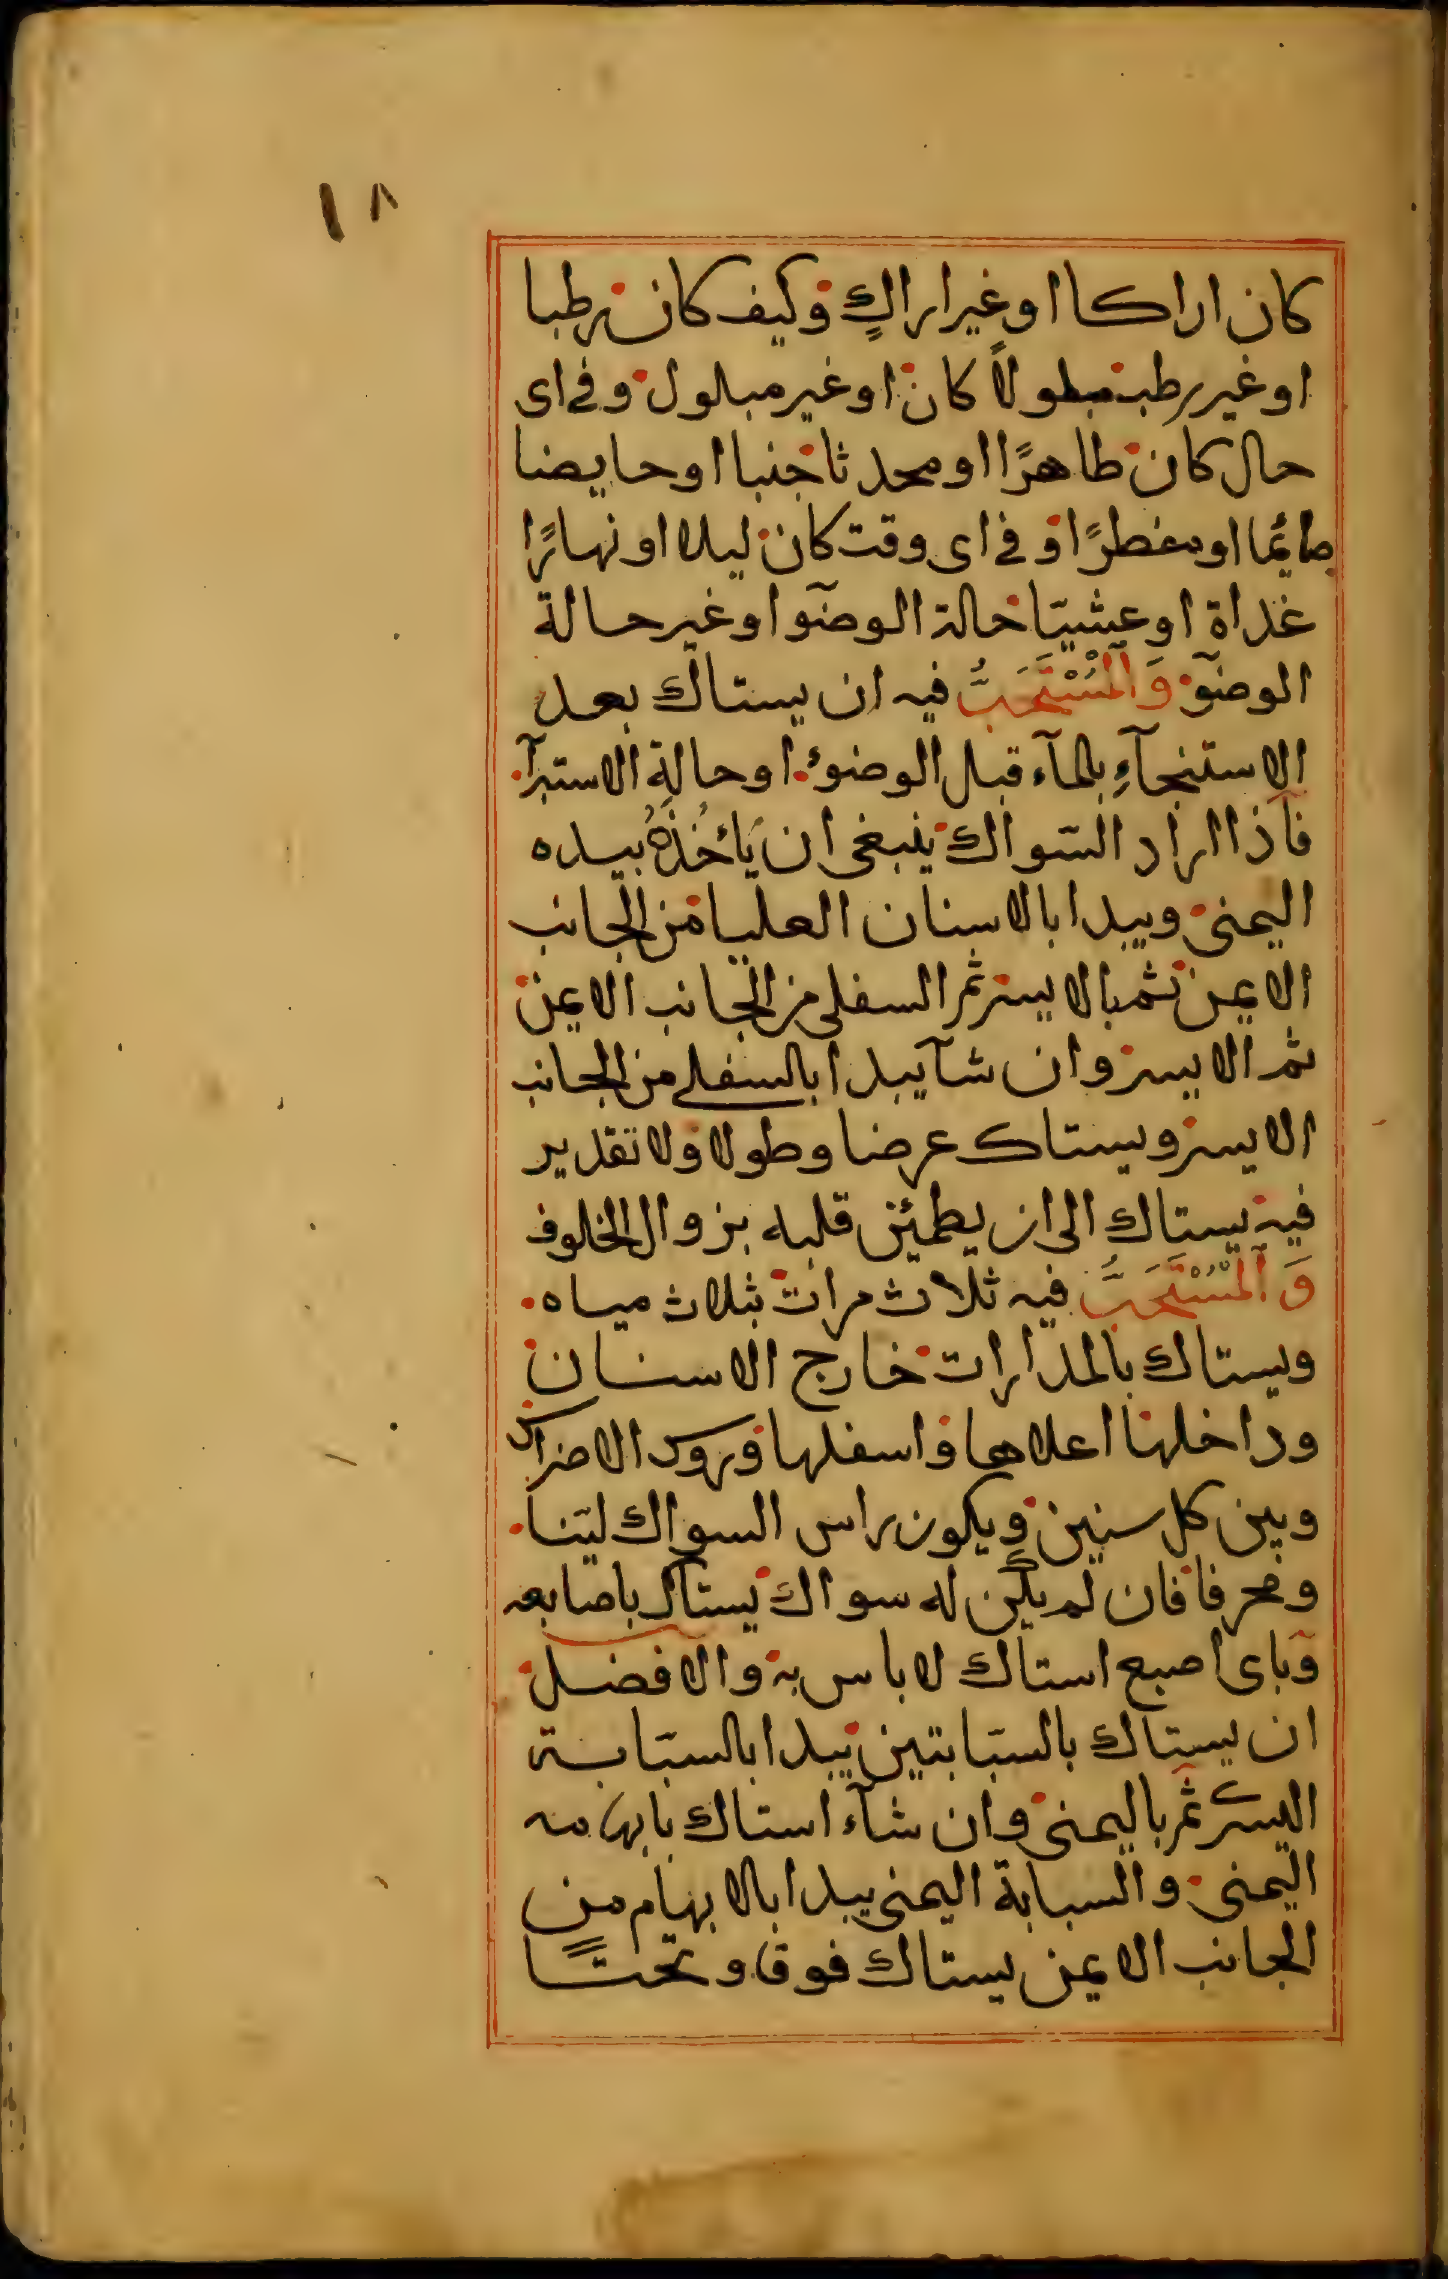 ١٨
كان اراكا او غير اراكٍ وكيف كان رطبا
او غير رطب مبلولاً كان او غير مبلول وفي اى
حال كان طاهرًا او محدثا جنبا او حايضا
صائما او مفطرًا وفي اى وقت كان ليلا او نهارًا
غداة او عشيّا حالة الوضوٓ او غير حالة
الوضوٓ وَالْمُسْتَحَبُّ فيه ان يستاك بعد
الاستنجآءِ بالمآء قبل الوضوء او حالة الاستبرآ
فاذا اراد السّواك ينبغى ان يَاْخُذَهُ بيده
اليمنى ويبدا بالاسنان العليا من الجانب
الايمن ثم بالايسر ثم السفلى من الجانب الايمن
ثم الايسر وان شآ يبدا بالسفلى من الجانب
الايسر ويستاك عرضا وطولا ولا تقدير
فيه يستاك الى ان يطمئن قلبه بزوال الخلوف
وَالْمُسْتَحَبُّ فيه ثلاث مرات بثلاث مياه
ويستاك بالمدارات خارج الاسنان
وداخلها اعلاها واسفلها وروس الاضراس
وبين كل سنين ويكون راس السواك ليّنا
ومحرفا فان لم يكن له سواك يستاك باصابعه
وباى اصبع استاك لا باس به والافضل
ان يستاك بالسّبابتين يبدا بالسبّابة
اليسرى ثم باليمنى وان شآء استاك بابهامه
اليمنى والسبابة اليمنى يبدا بالابهام من
الجانب الايمن يستاك فوق وتحتًا